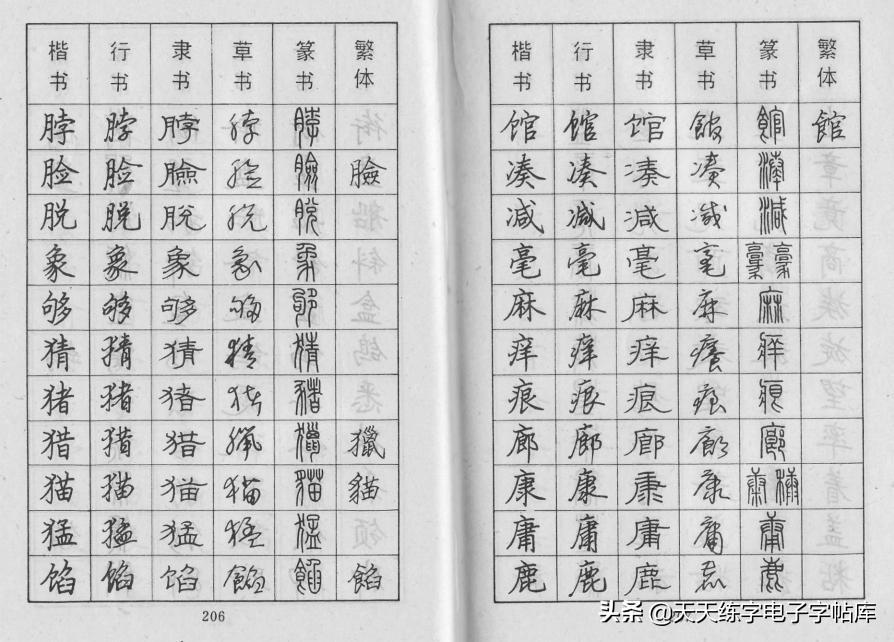 楷书 行书 隶书 草书 篆书 繁体
脖 脖 脖 脖 脖
脸 脸 臉 脸 臉 臉
脱 脱 脱 脱 脱
象 象 象 象 象
够 够 够 够 够
猜 猜 猜 猜 猜
猪 猪 猪 猪 猪
猎 猎 猎 獵 獵 獵
猫 猫 猫 猫 貓 貓
猛 猛 猛 猛 猛
馅 馅 馅 餡 餡 餡
206
楷书 行书 隶书 草书 篆书 繁体
馆 馆 馆 館 館 館
凑 凑 凑 凑 湊
减 减 减 减 減
毫 毫 毫 毫 毫 豪
麻 麻 麻 麻 麻
痒 痒 痒 癢 痒
痕 痕 痕 痕 痕
廊 廊 廊 廊 廊
康 康 康 康 康 穅
庸 庸 庸 庸 庸
鹿 鹿 鹿 鹿 鹿
头条 @天天练字电子字帖库